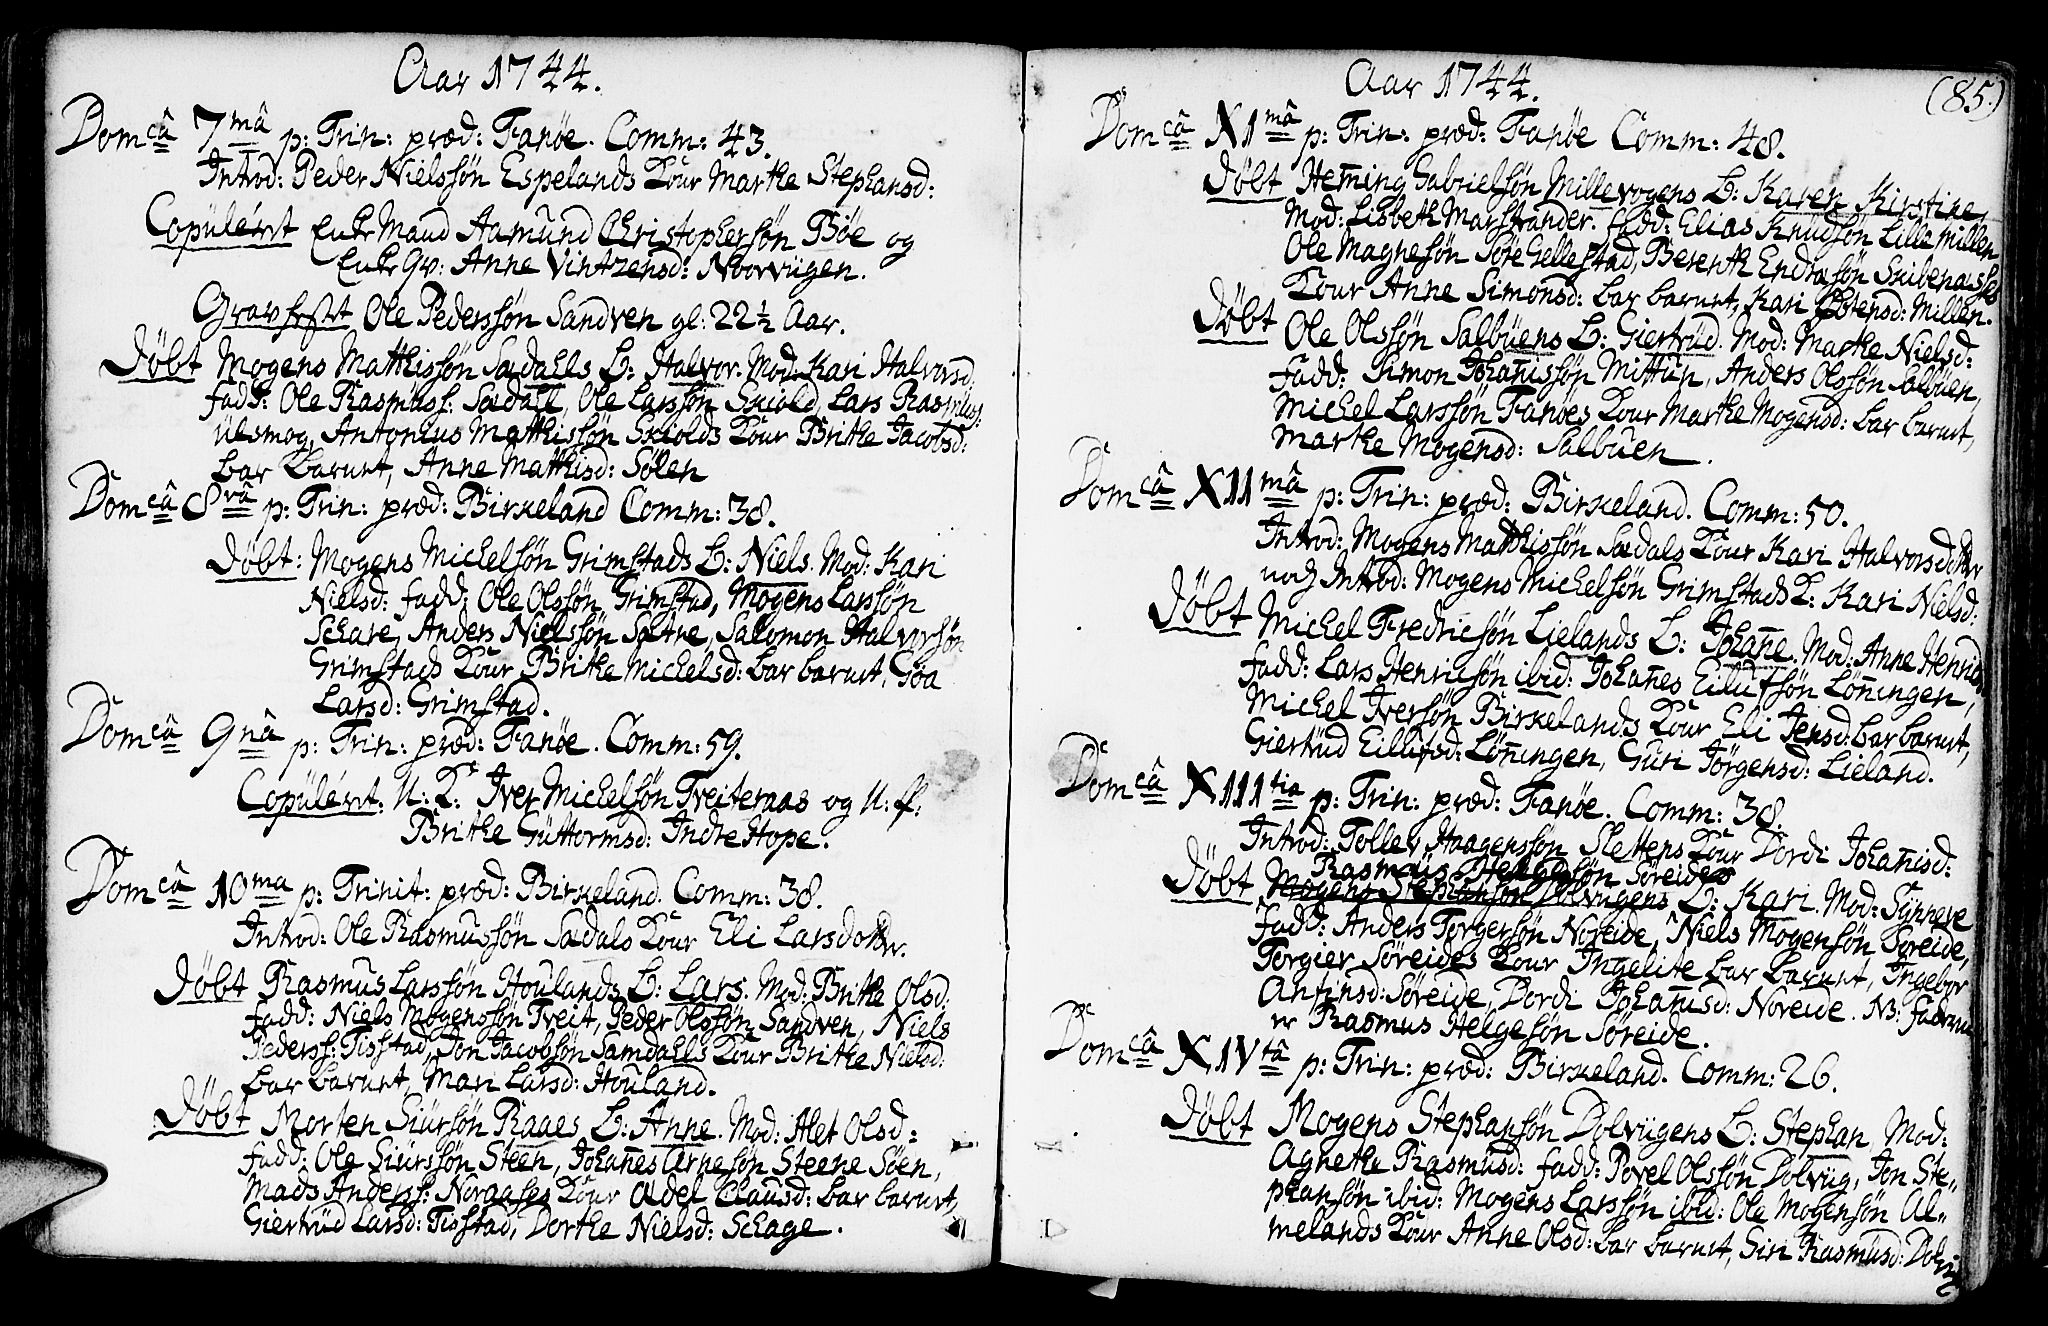 Aar 1744.
Dom^câ 7^mâ p: Trin: præd: Fanøe. Comm: 43.
Introd: Peder Nielssøn Espelands Kone Marthe Stephansd:
Copuleret Enke Mand Aamund Christophersøn Bøe og
Enke Qv: Anne Vintzensd: Noorvügen.
Gravfæstet Ole Pederssøn Sandven gl: 22½ Aar.
Døbt Mogens Matthissøn Sædahls B: Halvor. Mod: Kari Halvorsd:
Fadd: Ole Rasmüss: Sædahl, Ole Larssøn Skiold, Lars Rasmüss:
Ulsmog, Antonius Matthissøn Skiolds Kone Brithe Jacobsd:
bar barnet, Anne Matthisd: Sølen
Dom^câ 8^vâ p: Trin: præd: Birkeland Comm: 38.
Døbt: Mogens Michelsøn Grimstads B: Niels. Mod: Kari
Nielsd: Fadd: Ole Olssøn Grimstad, Mogens Larssøn
Schare, Anders Nielssøn Sætre, Salomon Halvorsøn
Grimstads Kone Brithe Michelsd: bar barnet, Goa
Larsd: Grimstad.
Dom^câ 9^nâ p: Trin: præd: Fanøe. Comm: 59.
Copuleret. U: K: Iver Michelsøn Tveiteraas og U: P:
Brithe Güttormsd: Indre Hope.
Dom^câ 10^ma p: Trinit: præd: Birkeland. Comm: 38.
Introd: Ole Rasmussøn Sædals Kone Eli Larsdotter.
Døbt Rasmus Larssøn Houlands B: Lars. Mod: Brithe Olsd:
Fadd: Niels Mogenssøn Tveit, Peder Olssøn Sandven, Niels
Pederss: Tisstad, Jon Jacobsøn Samdahls Kone Brithe Nielsd:
bar barnet, Mari Larsd: Houland.
Døbt Morten Siursøn Raaes B: Anne. Mod: Alet Olsd:
Fadd: Ole Siurssøn Steen, Johanes Arnesøn Steene Søen,
Mads Anderss: Noraases Kone Adel Clausd: bar barnet,
Giertrüd Larsd: Tisstad, Dorthe Nielsd: Schage.
Aar 1744.
(85.)
Dom^câ XI^mâ p: Trin: præd: Fanøe Comm: 48.
Døbt Heming Gabrielsøn Millevogens B: Karen Kirstine,
Mod: Lisbeth Marstrander. Fadd: Elias Knudsøn Lille Millen
Ole Magnesøn Søre Gellestad, Berenth Endresøn Skibenæsses
Kone Anne Simonsd: bar barnet, Kari Østensd: Millen.
Døbt Ole Olssøn Salbuens B: Giertrüd. Mod: Marthe Nielsd:
Fadd: Simon Johanissøn Mittün, Anders Olssøn Salbüen,
Michel Larssøn Fanøes Kone Marthe Mogensd: bar barnet,
Marthe Mogensd: Salbüen.
Dom^câ XII^mâ p: Trin: præd: Birkeland. Comm: 50.
Introd: Mogens Matthissøn Sædals Kone Kari Halvorsdotter
nock Introd: Mogens Michelsøn Grimstads K: Kari Nielsd:
Døbt Michel Fredricsøn Lielands B: Johane. Mod: Anne Henrics
Fadd: Lars Henricsøn ibid: Johanes Eilufsøn Løningen,
Michel Iversøn Birkelands Kone Eli Jensd: bar barnet,
Giertrüd Eilufsd: Løningen, Guri Jørgensd: Lieland.
Dom^câ XIII^tia p: Trin: præd: Fanøe. Comm: 38.
Introd: Tollev Haagenssøn Slettens Kone Dordi Johanisd:
Rasmüs Helgesøn Søreides
Døbt Mogens Stephansøn Dolvügens B: Kari. Mod: Synneve
Fadd: Anders Torgersøn Noreide, Niels Mogensøn Søreide,
Torgier Søreides Kone Ingelite bar barnet, Ingebor
Anfinsd: Søreide, Dordi Johanisd: Noreide. NB: Faderen
er Rasmus Helgesøn Søreide.
Dom^câ XIV^tâ p: Trin: præd: Birkeland. Comm: 26.
Døbt Mogens Stephansøn Dolvügens B: Stephan, Mod:
Agnethe Rasmusd: Fadd: Povel Olssøn Dolvüg, Jon Ste-
phansøn ibid: Mogens Larssøn ibid: Ole Mogensøn Al-
melands Kone Anne Olsd: bar barnet, Siri Rasmusd: Dolvüg